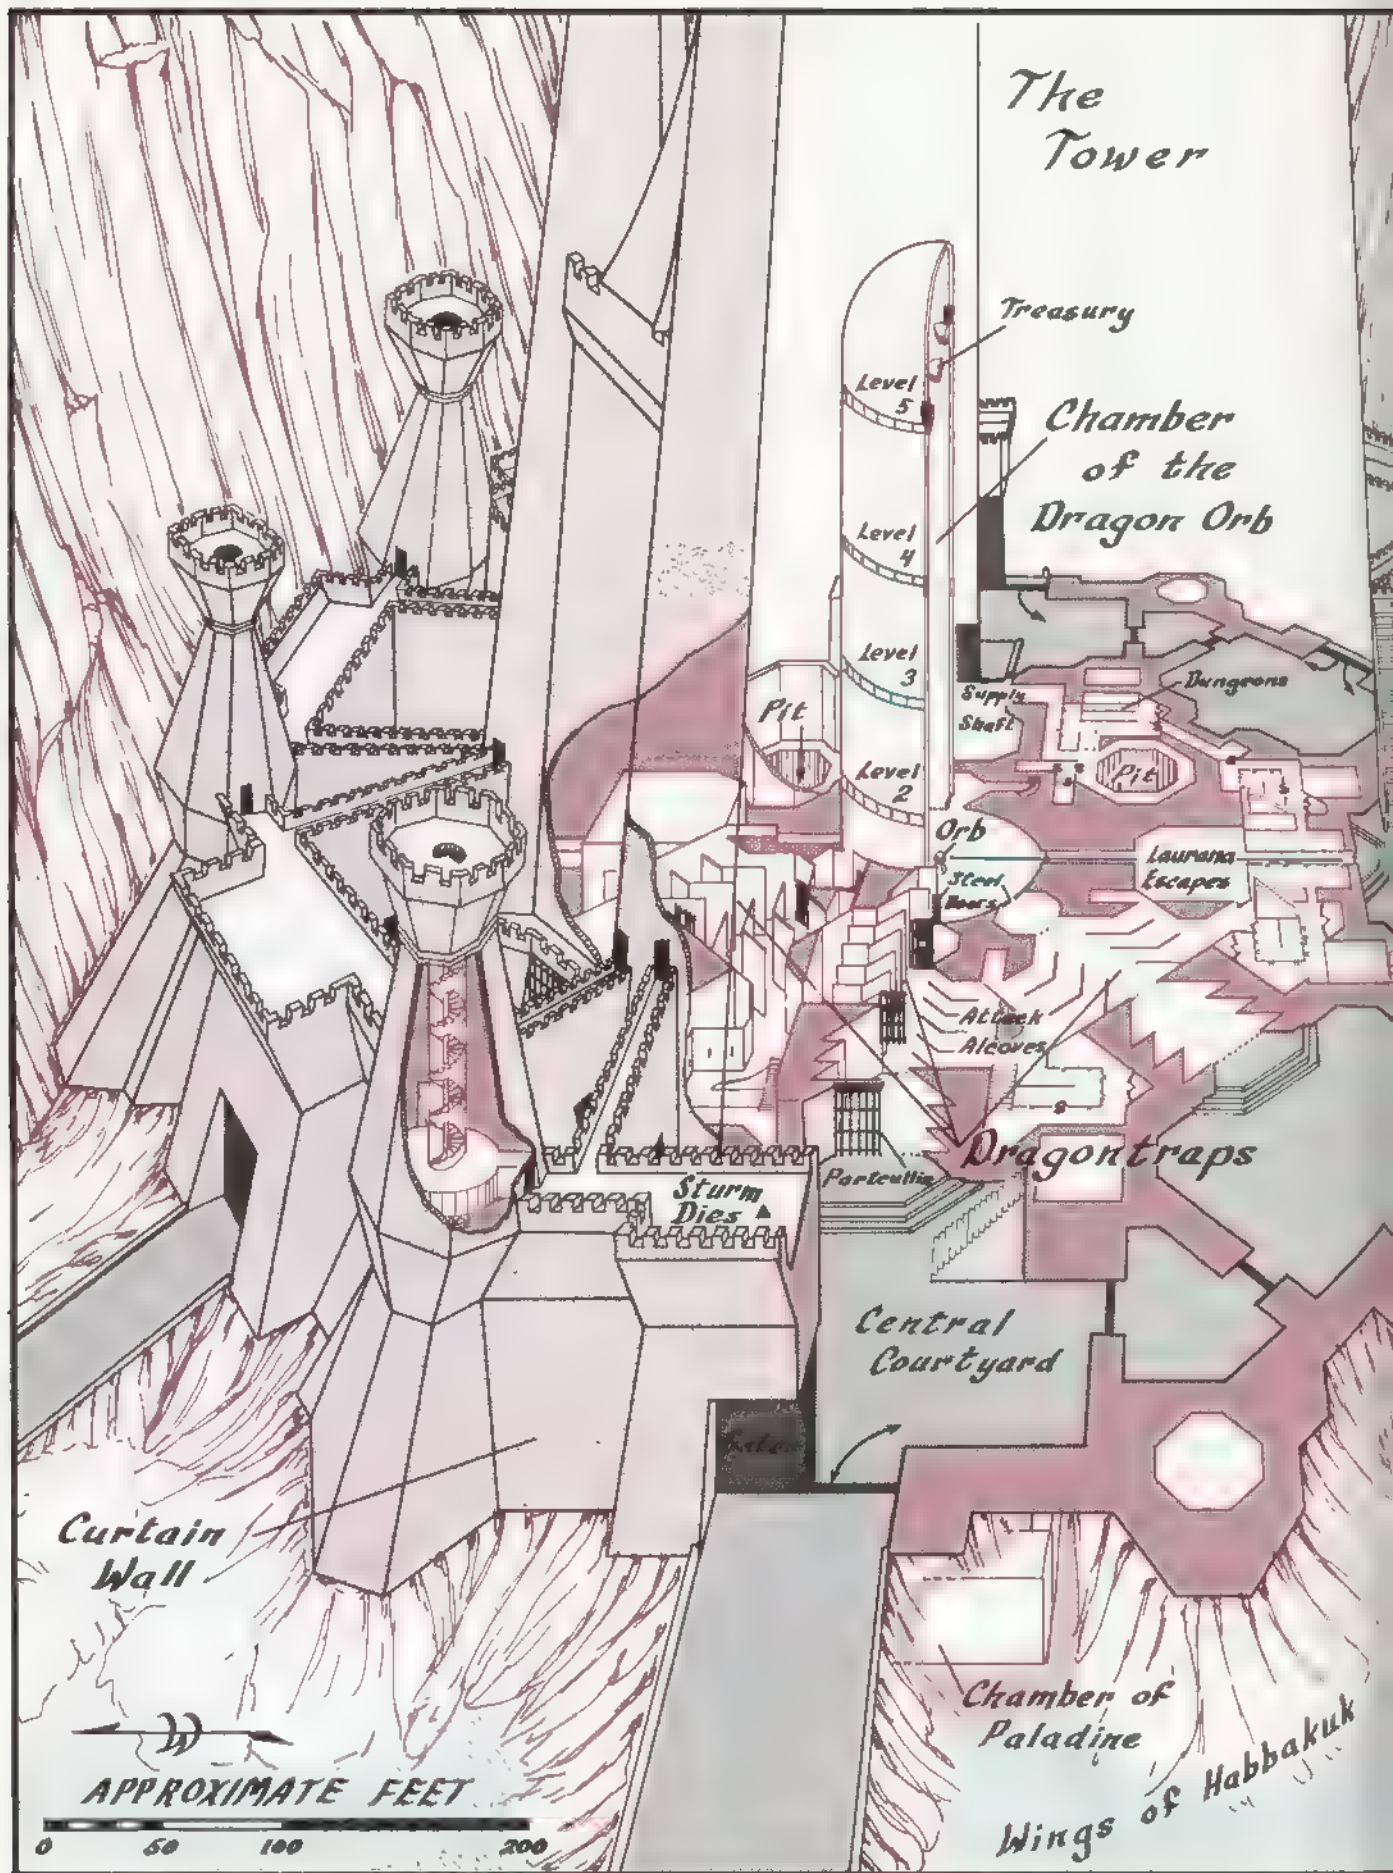 The
Tower
Treasury
Level
5
Chamber
of the
Dragon Orb
Level
4
Level
3
Supply
Shaft
Dungeons
Pit
Pit
Level
2
Orb
Steel
Doors
Laurana
Escapes
Attack
Alcoves
Dragontraps
Portcullis
Sturm
Dies
Central
Courtyard
Curtain
Wall
Chamber of
Paladine
Wings of Habbakuk
W
APPROXIMATE FEET
0 50 100 200